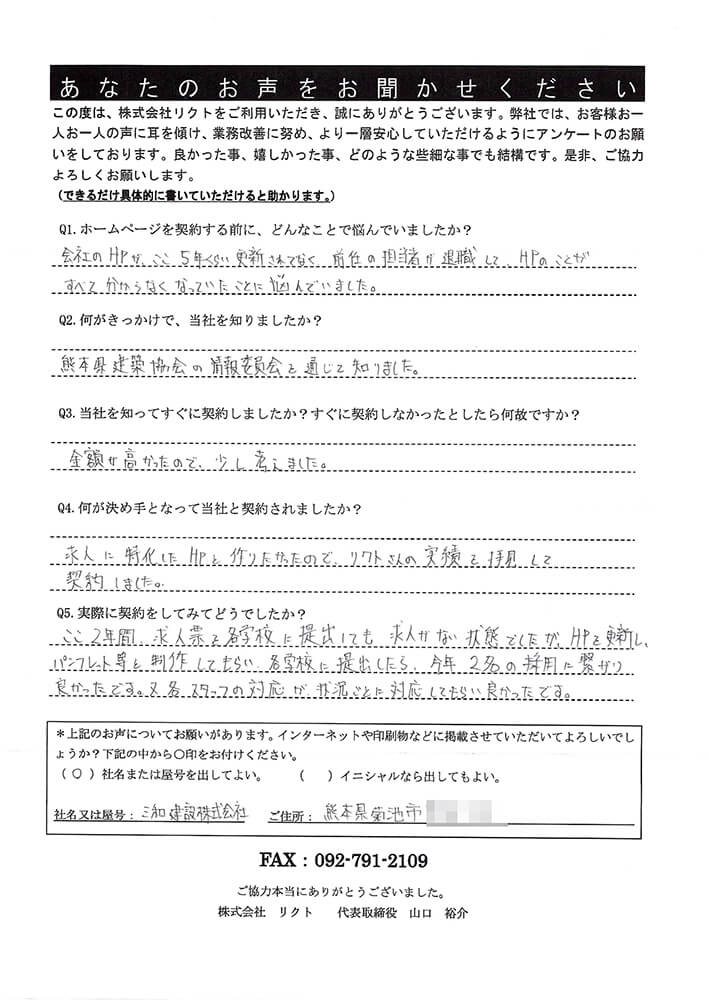 あなたのお声をお聞かせください
この度は、株式会社リクトをご利用いただき、誠にありがとうございます。弊社では、お客様お一
人お一人の声に耳を傾け、業務改善に努め、より一層安心していただけるようにアンケートのお願
いをしております。良かった事、嬉しかった事、どのような些細な事でも結構です。是非、ご協力
よろしくお願いします。
（できるだけ具体的に書いていただけると助かります。）
Q1.ホームページを契約する前に、どんなことで悩んでいましたか？
会社のHPが、ここ5年くらい更新されてなく、前任の担当者が退職して、HPのことが
すべて分からなくなっていたことに悩んでいました。
Q2.何がきっかけで、当社を知りましたか？
熊本県建築協会の情報委員会を通じて知りました。
Q3.当社を知ってすぐに契約しましたか？すぐに契約しなかったとしたら何故ですか？
金額が高かったので、少し考えました。
Q4.何が決め手となって当社と契約されましたか？
求人に特化したHPを作りたかったので、リクトさんの実績を拝見して
契約しました。
Q5.実際に契約をしてみてどうでしたか？
ここ2年間、求人票を各学校に提出しても求人がない状態でしたが、HPを更新し、
パンフレット等を制作してもらい、各学校に提出したら、今年2名の採用に繋がり
良かったです。又各スタッフの対応が、状況ごとに対応してもらい良かったです。
＊上記のお声についてお願いがあります。インターネットや印刷物などに掲載させていただいてよろしいでし
ょうか？下記の中から〇印をお付けください。
（〇）社名または屋号を出してよい。　（　）イニシャルなら出してもよい。
社名又は屋号：三和建設株式会社　ご住所：熊本県菊池市
FAX：092-791-2109
ご協力本当にありがとうございました。
株式会社　リクト　代表取締役　山口　裕介